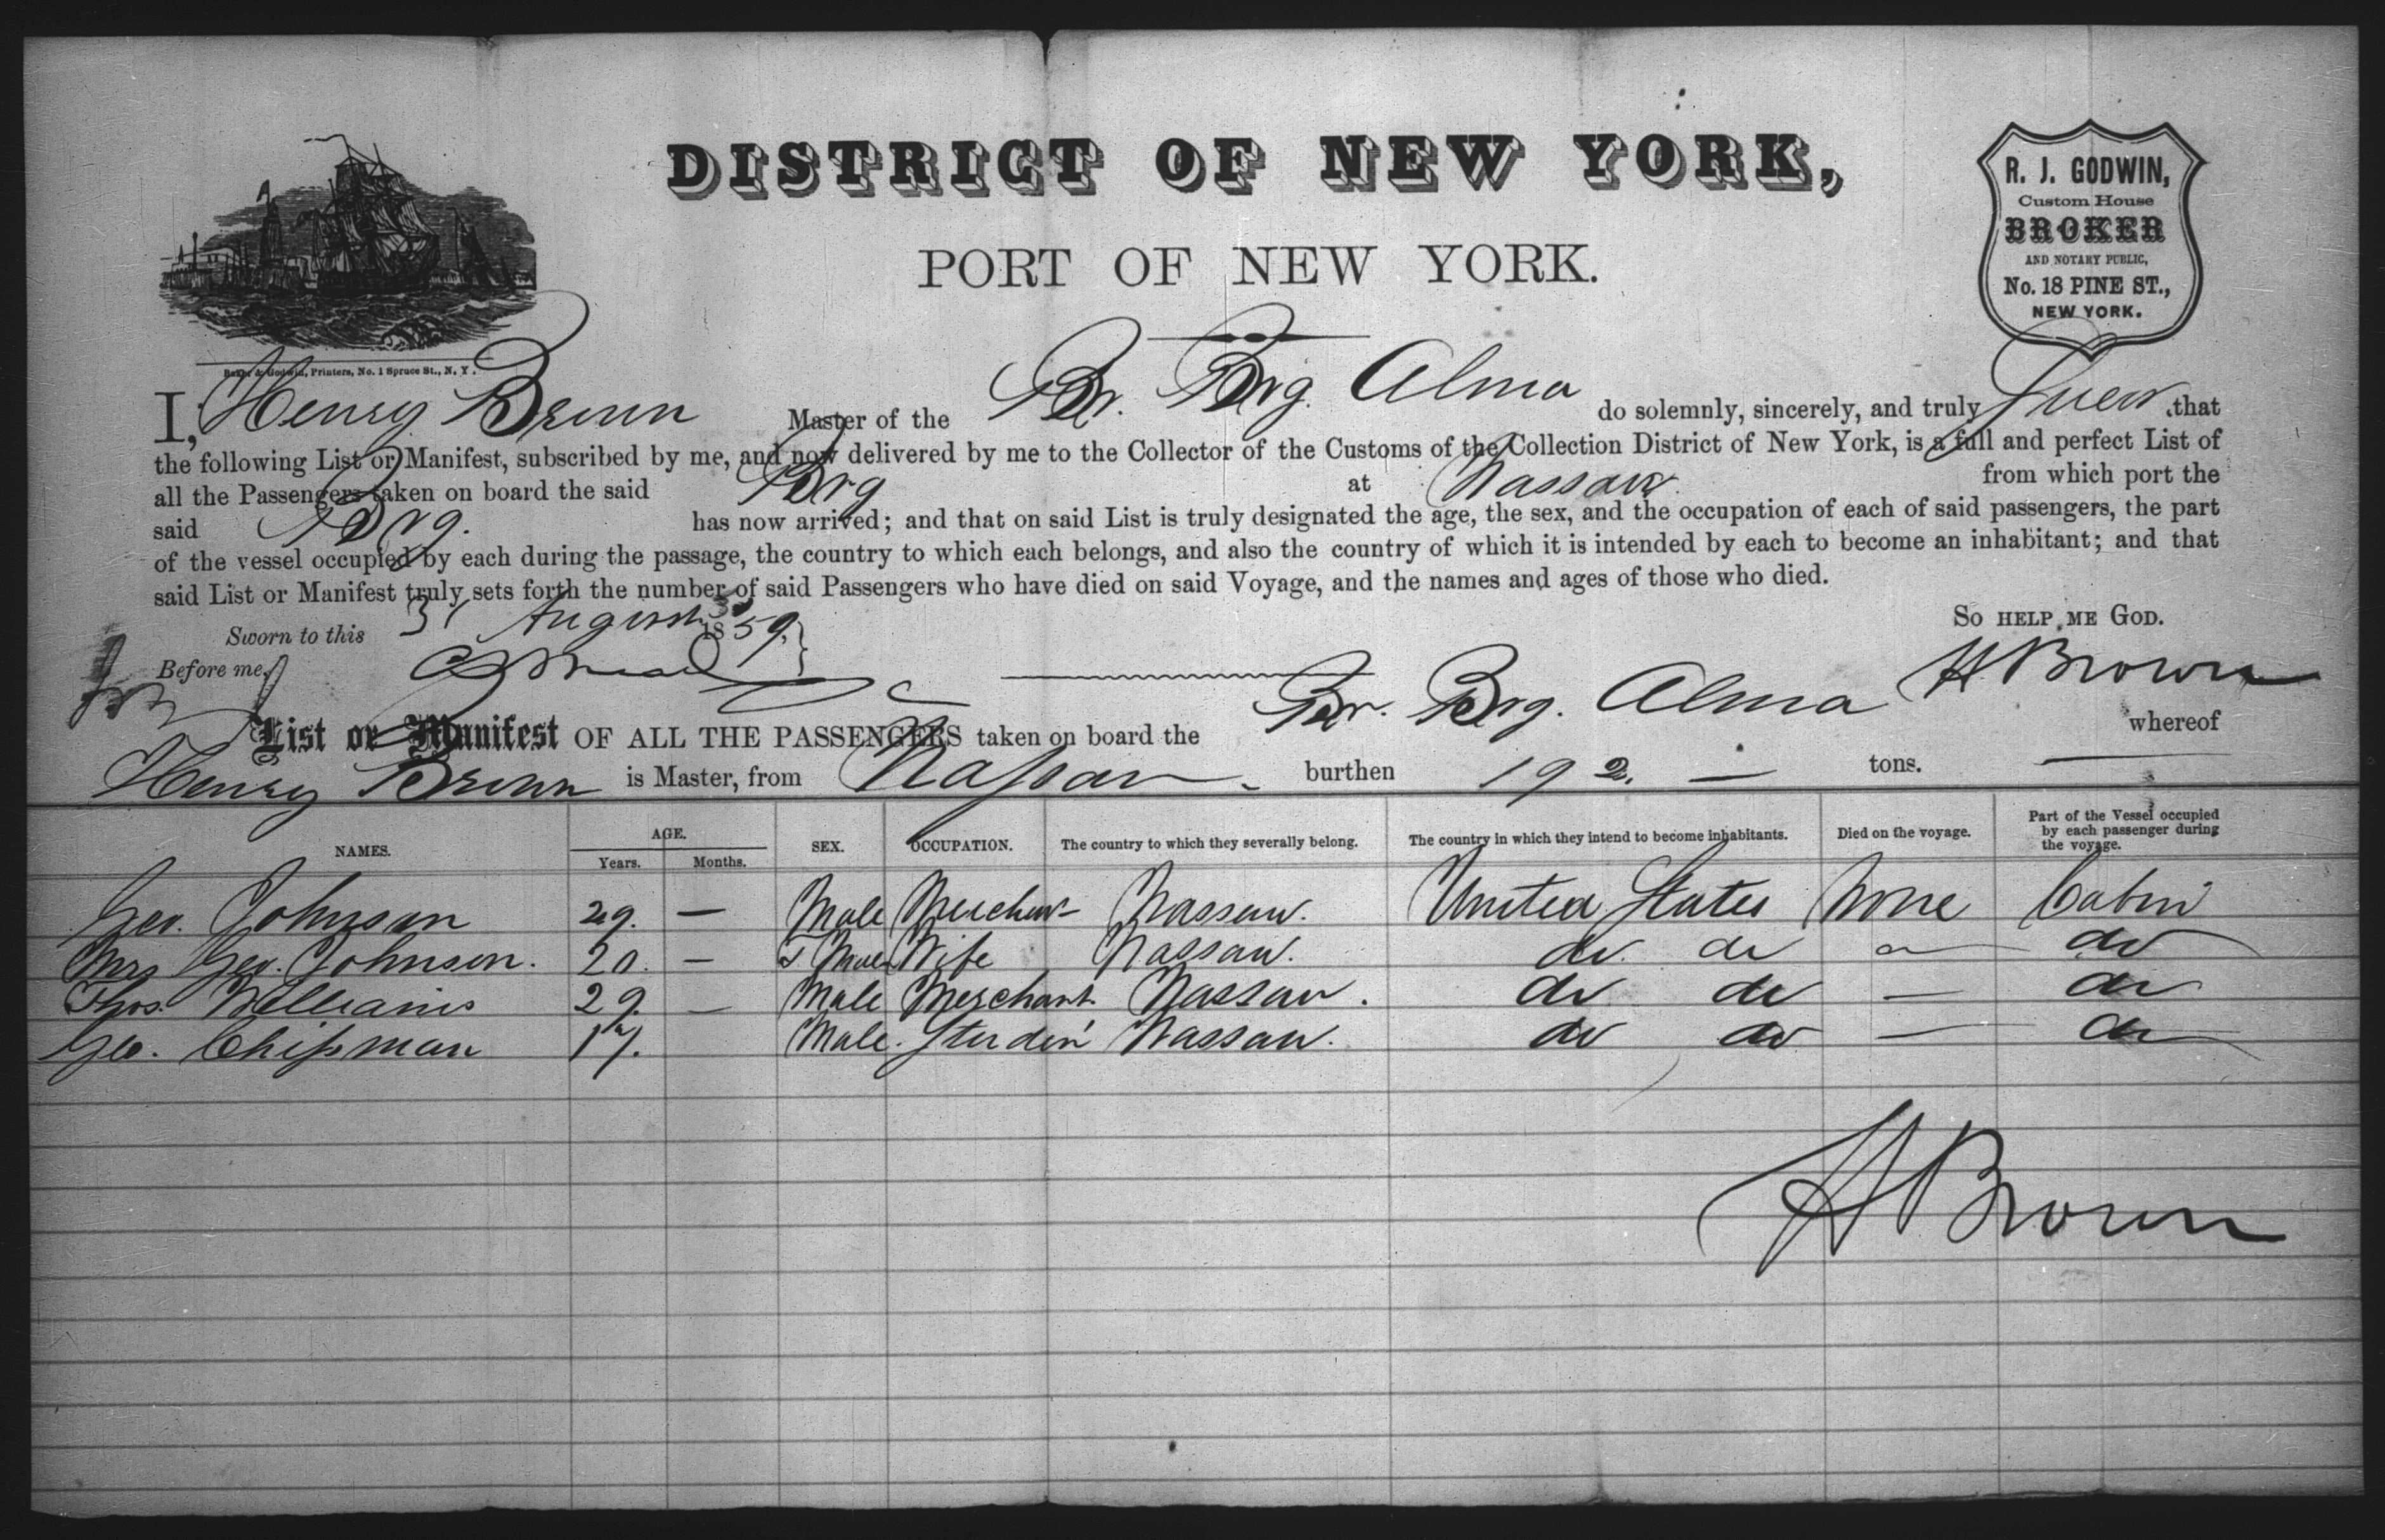 DISTRICT OF NEW YORK,
PORT OF NEW YORK.
R. J. GODWIN,
Custom House
BROKER
AND NOTARY PUBLIC,
No. 18 PINE ST.,
NEW YORK.
Baker & Godwin, Printers, No. 1 Spruce St., N. Y.
I, Henry Brown Master of the Br. Brig. Alma do solemnly, sincerely, and truly Swear that
the following List or Manifest, subscribed by me, and now delivered by me to the Collector of the Customs of the Collection District of New York, is a full and perfect List of
all the Passengers taken on board the said Brig at Nassau from which port the
said Brig. has now arrived; and that on said List is truly designated the age, the sex, and the occupation of each of said passengers, the part
of the vessel occupied by each during the passage, the country to which each belongs, and also the country of which it is intended by each to become an inhabitant; and that
said List or Manifest truly sets forth the number of said Passengers who have died on said Voyage, and the names and ages of those who died.
So HELP ME GOD.
Sworn to this 31 August 1859.
Before me,
H Brown
List or Manifest OF ALL THE PASSENGERS taken on board the Br. Brig. Alma whereof
Henry Brown is Master, from Nassau burthen 192. — tons.
NAMES. AGE. Years. Months. SEX. OCCUPATION. The country to which they severally belong. The country in which they intend to become inhabitants. Died on the voyage. Part of the Vessel occupied by each passenger during the voyage.
Geo. Johnson 29. — Male Merchant Nassau. United States None Cabin
Mrs Geo. Johnson. 20. — Wife Nassau. do. do do
Thos. Williams 29. — Male Merchant Nassau. do do — do
Geo. Chipman 17. Male. Nassau. do do — do
H Brown